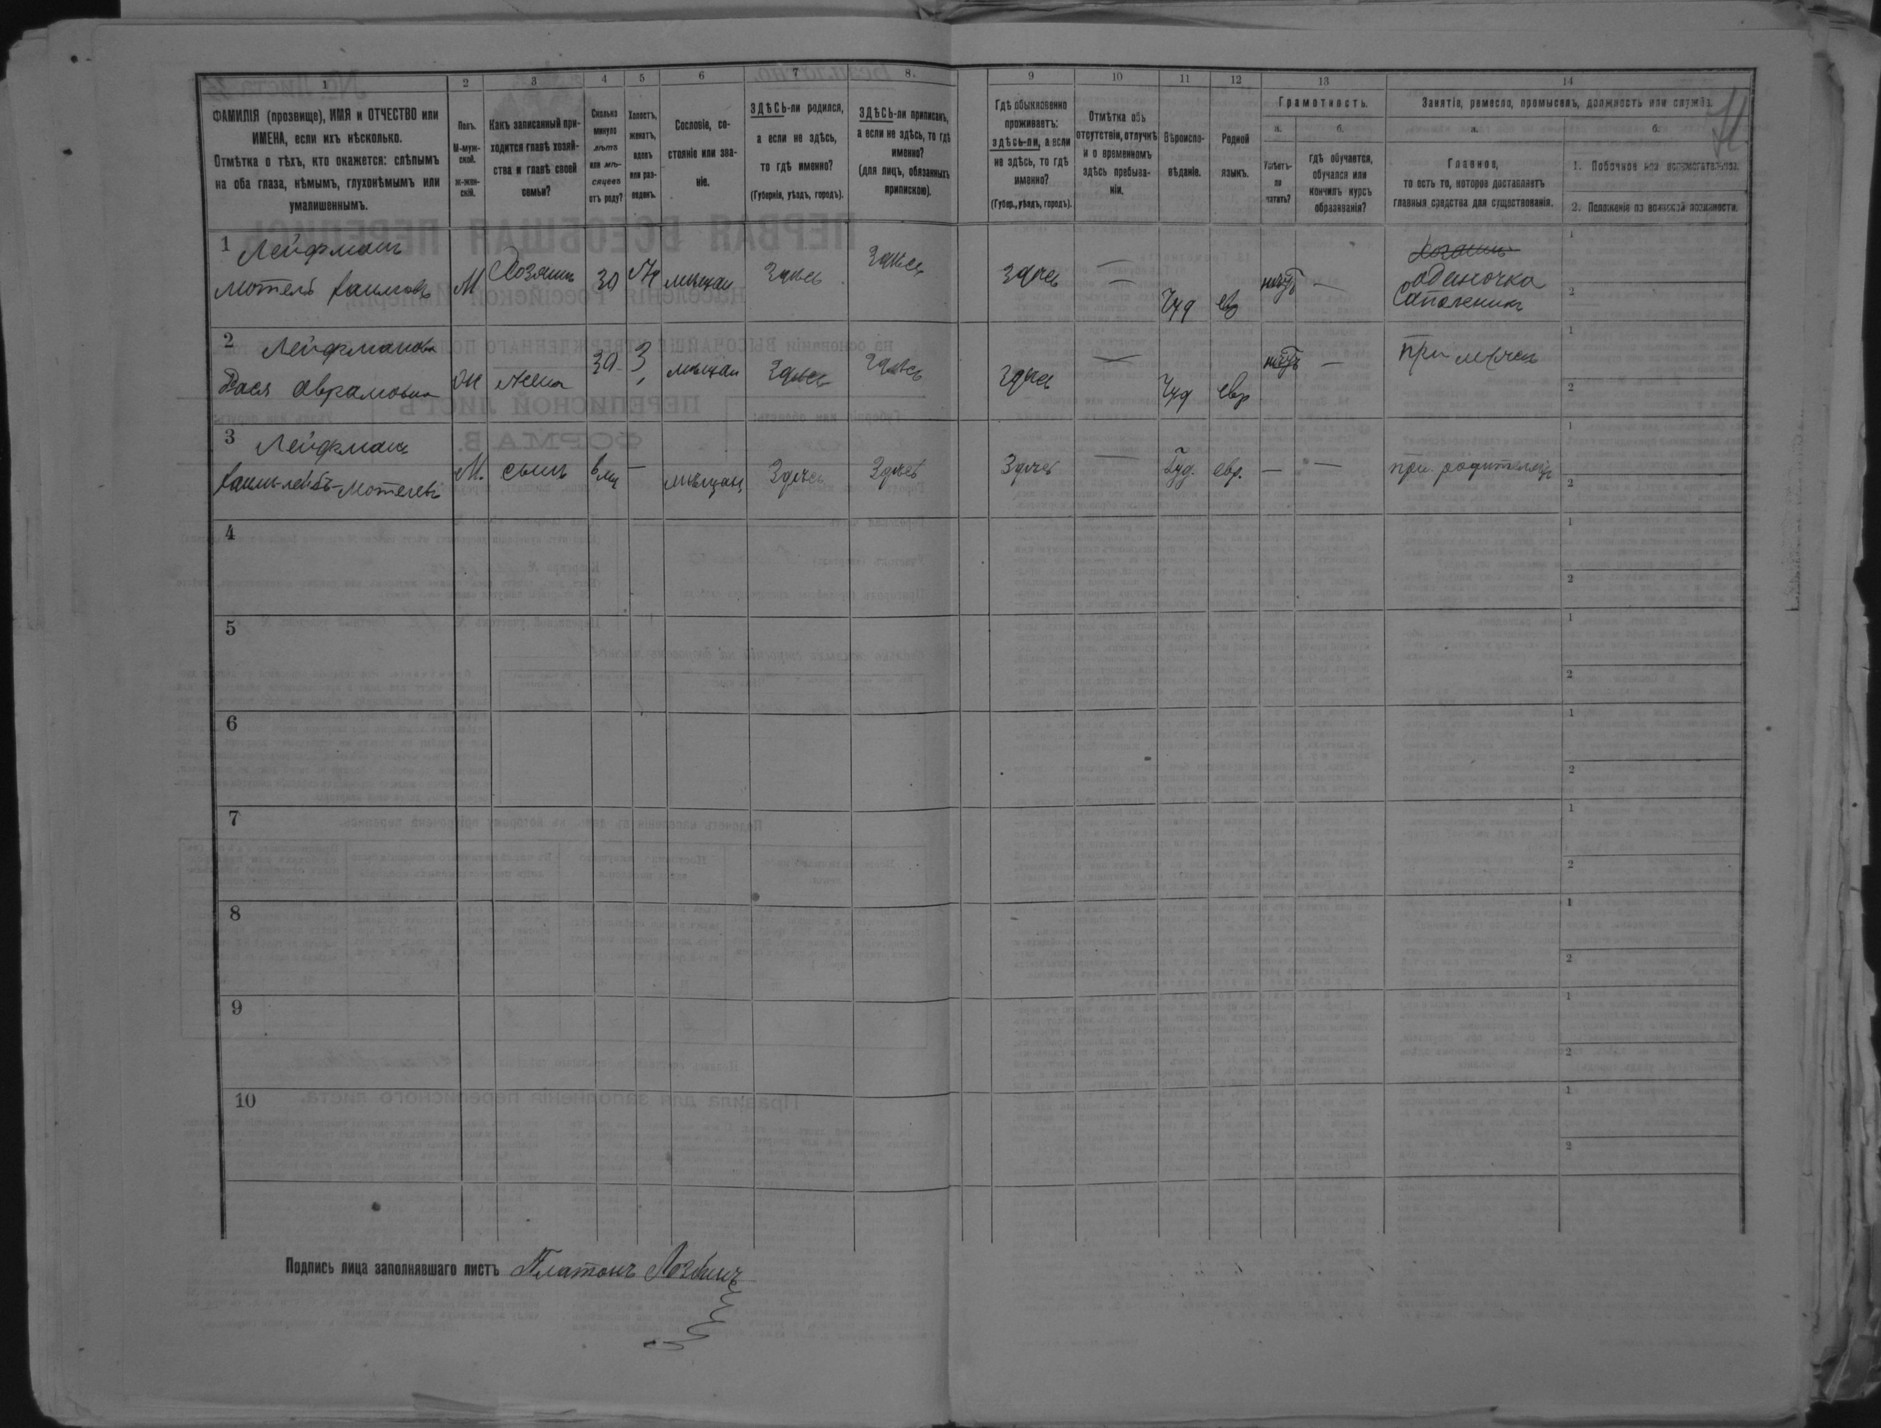 1
2
3
4
5
6
7
8.
9
10
11
12
13
14
ФАМИЛІЯ (прозвище), ИМЯ и ОТЧЕСТВО или
ИМЕНА, если ихъ нѣсколько.
Отмѣтка о тѣхъ, кто окажется: слѣпымъ
на оба глаза, нѣмымъ, глухонѣмымъ или
умалишеннымъ.
Полъ.
М-муж-
ской.
ж-жен-
скій.
Какъ записанный при-
ходится главѣ хозяй-
ства и главѣ своей
семьи?
Сколько
минуло
лѣтъ
или мѣ-
сяцевъ
отъ роду?
Холостъ,
женатъ,
вдовъ
или раз-
веденъ.
Сословіе, со-
стояніе или зва-
ніе.
ЗДѢСЬ-ли родился,
а если не здѣсь,
то гдѣ именно?
(Губернія, уѣздъ, городъ).
ЗДѢСЬ-ли приписанъ,
а если не здѣсь, то гдѣ
именно?
(для лицъ, обязанныхъ
припискою).
Гдѣ обыкновенно
проживаетъ:
здѣсь-ли, а если
не здѣсь, то гдѣ
именно?
(Губер., уѣздъ, городъ).
Отмѣтка объ
отсутствіи, отлучкѣ
и о временномъ
здѣсь пребыва-
ніи.
Вѣроиспо-
вѣданіе.
Родной
языкъ.
Грамотность.
а.
б.
Умѣетъ-
ли
читать?
Гдѣ обучается,
обучался или
кончилъ курсъ
образованія?
Занятіе, ремесло, промыселъ, должность или служба.
а.
б.
Главное,
то есть то, которое доставляетъ
главныя средства для существованія.
1. Побочное или вспомогательное.
2. Положеніе по воинской повинности.
1 Лейфманъ
Мотель Хаимовъ М Хозяинъ 30 Ж мѣщан Здѣсь Здѣсь здѣсь — Іуд ев — одиночка
Сапожникъ
2 Лейфманова
Хася Аврамовна Ж Жена 30 З мѣщан Здѣсь Здѣсь Здѣсь — Іуд евр — при мужѣ
3 Лейфманъ
Хаимъ-Лейбъ-Мотелевъ М. сынъ 6 мц — мѣщан Здѣсь Здѣсь Здѣсь — Іуд. евр. — — при родителяхъ
4
5
6
7
8
9
10
Подпись лица заполнявшаго листъ Платонъ